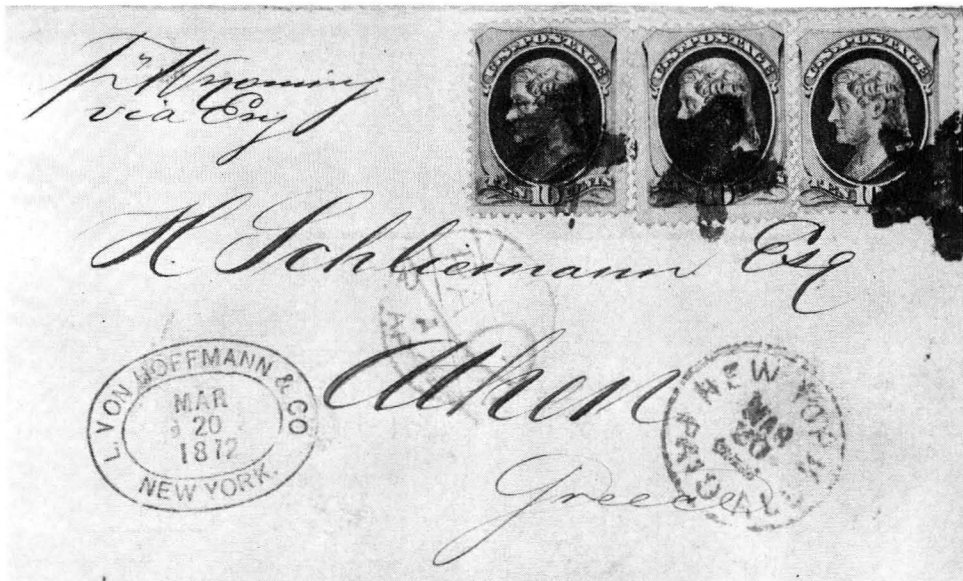 pr "Wyoming
via Eng
U.S. POSTAGE
U.S. POSTAGE
U.S. POSTAGE
10
10
H. Schliemann Esq
Athen
Greece
L. VON HOFFMANN & CO
MAR
20
1872
NEW YORK.
NEW YORK
MAR
20
PAID ALL